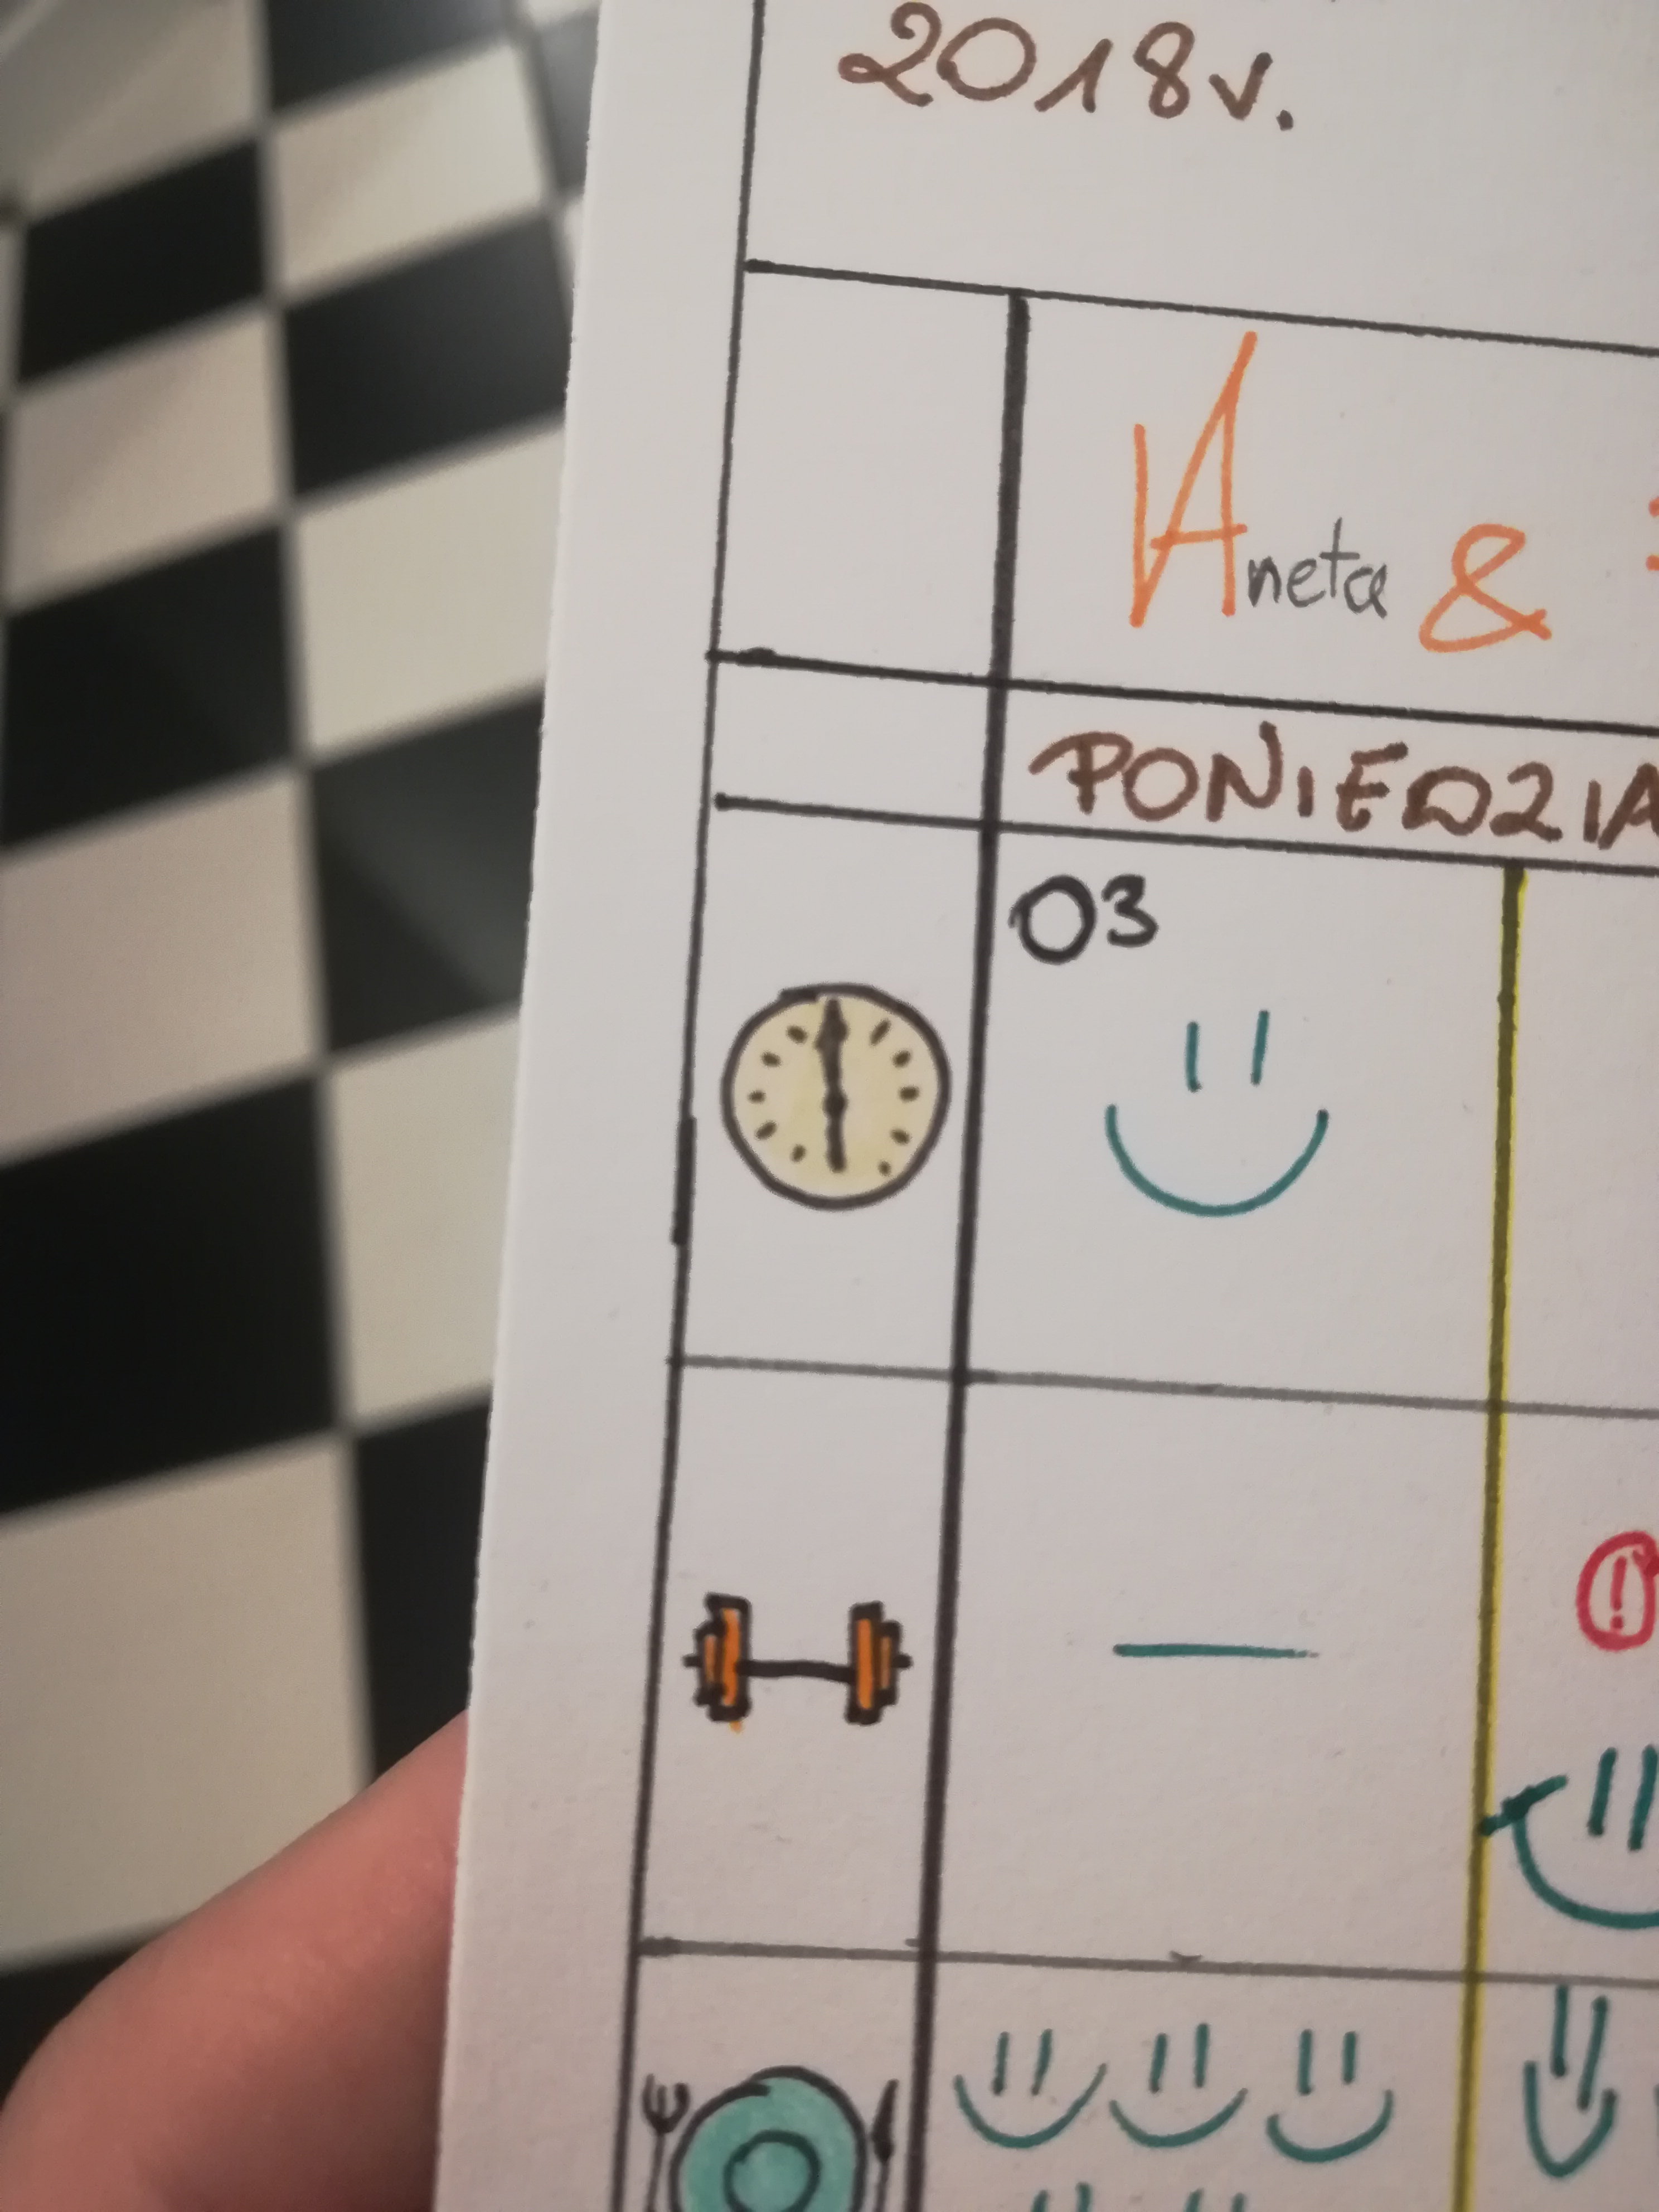 2018r.
Aneta &
PONIEDZIA
03
!